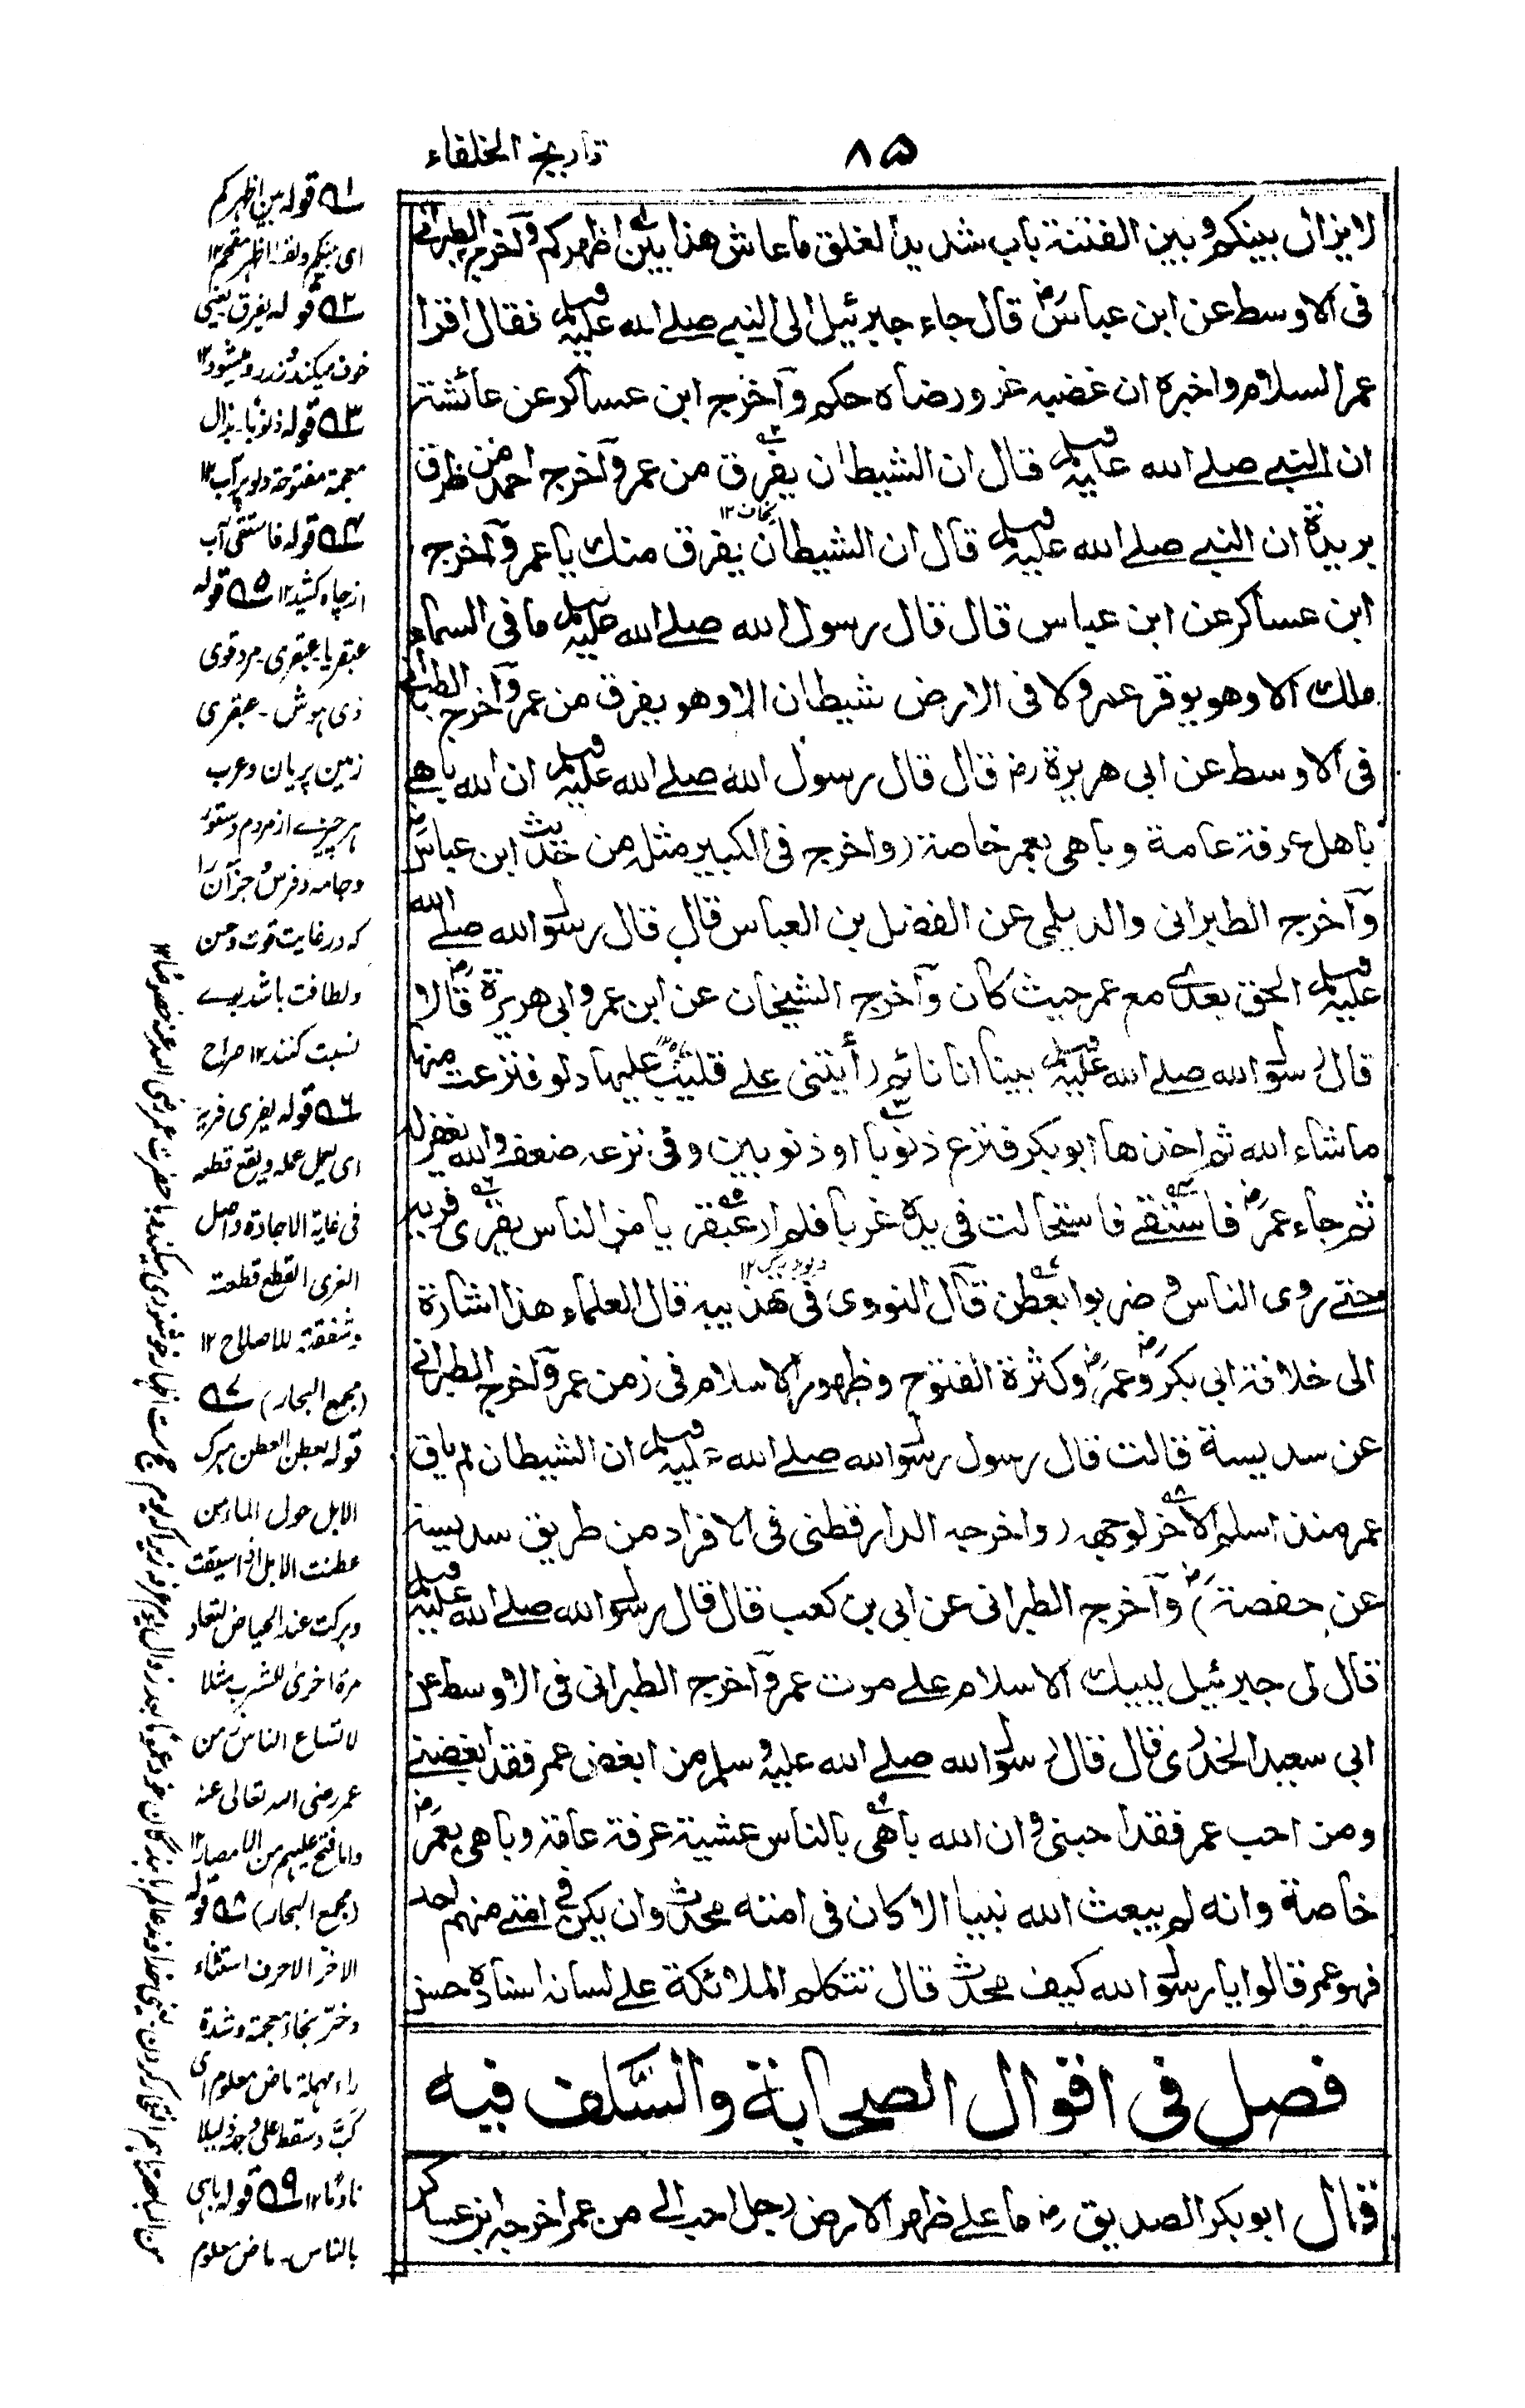 ٨٥
تاريخ الخلفاء
لا يزال بينكم وبين الفتنة باب شديد الغلق ما عاش هذا بين اظهركم وآخرج الطبرانى
فى الاوسط عن ابن عباس رض قال جاء جبرئيل الى النبي صلے الله عليه وسلم فقال اقرأ
عمر السلام واخبره ان غضبه عز ورضاه حكم وآخرج ابن عساكر عن عائشة
ان النبي صلے الله عليه وسلم قال ان الشيطان يفرق من عمر وآخرج احمد من طريق
بريدة ان النبي صلے الله عليه وسلم قال ان الشيطان يفرق منك يا عمر وآخرج
ابن عساكر عن ابن عباس قال قال رسول الله صلے الله عليه وسلم ما فى السماء
ملك الا وهو يوقر عمر ولا فى الارض شيطان الا وهو يفرق من عمر وآخرج الطبرانى
فى الاوسط عن ابى هريرة رض قال قال رسول الله صلے الله عليه وسلم ان الله باهى
باهل عرفة عامة وباهى بعمر خاصة (واخرج فى الكبير مثله من حديث ابن عباس رض
وآخرج الطبرانى والديلمى عن الفضل بن العباس قال قال رسول الله صلے الله
عليه وسلم الحق بعدى مع عمر حيث كان وآخرج الشيخان عن ابن عمر وابى هريرة رض قالا
قال رسول الله صلے الله عليه وسلم بينا انا نائم رأيتنى علے قليب عليها دلو فنزعت منها
ما شاء الله ثم اخذها ابو بكر فنزع ذنوبا او ذنوبين وفى نزعه ضعف والله يغفر له
ثم جاء عمر رض فاستقے فاستحالت فى يده غربا فلم ار عبقريا من الناس يفرى فريه
حتے روى الناس وضربوا بعطن قآل النووى فى تهذيبه قال العلماء هذا اشارة
الى خلافة ابى بكر رض وعمر رض وكثرة الفتوح وظهور الاسلام فى زمن عمر وآخرج الطبرانى
عن سديسة قالت قال رسول رسول الله صلے الله عليه وسلم ان الشيطان لم يلق
عمر منذ اسلم الا خر لوجهه (واخرجه الدارقطنى فى الافراد من طريق سديسة
عن حفصة رض) وآخرج الطبرانى عن ابى بن كعب قال قال رسول الله صلے الله عليه وسلم
قال لى جبرئيل ليبك الاسلام علے موت عمر وآخرج الطبرانى فى الاوسط عن
ابى سعيد الخدرى قال قال رسول الله صلے الله عليه وسلم من ابغض عمر فقد ابغضنے
ومن احب عمر فقد احبنى وان الله باهى بالناس عشية عرفة عامة وباهى بعمر رض
خاصة وانه لم يبعث الله نبيا الا كان فى امته محدث وان يكن فى امتے منهم احد
فهو عمر قالوا يا رسول الله كيف محدث قال تتكلم الملائكة علے لسانه اسناده حسن
فصل فى اقوال الصحابة والسلف فيه
قال ابو بكر الصديق رض ما علے ظهر الارض رجل احب الے من عمر اخرجه ابن عساكر
٥١ قوله بين اظهركم
اى بينكم ولفظ اظهر مقحم ١٢
٥٢ قوله يفرق يعنى
خوف ميكند
٥٣ قوله ذنوبا ـ بذال
معجمة مفتوحة دلو پر آب ١٢
٥٤ قوله فاستقى آب
از چاه كشيد ١٢ ٥٥ قوله
عبقريا ـ عبقرى ـ مرد قوى
ذى هوش ـ عبقرى
زمين پريان وعرب
هر چيزے از مردم وستور
وجامه وفرش جز آن را
كه در غايت قوت وحسن
ولطافت باشد بوے
نسبت كنند ١٢ صراح
٥٦ قوله يفرى فريه
اى يعمل عمله ويقطع قطعه
فى غاية الاجادة واصل
الفرى القطع قطعته
وشققته للاصلاح ١٢
(مجمع البحار) ٥٧
قوله بعطن العطن مبرك
الابل حول الماء من
عطنت الابل اذا سيقت
وبركت عند الحياض لتعاد
مرة اخرى للشرب مثلا
لاتساع الناس من
عمر رضى الله تعالى عنه
وما فتح عليهم من الامصار ١٢
(مجمع البحار) ٥٨ قوله
الا خر الا حرف استثناء
وخر بخاء معجمة وشدة
راء مهملة ماض معلوم اى
كب وسقط على وجهه ذليلا
نادما ١٢ ٥٩ قوله باهى
بالناس ـ ماض معلوم